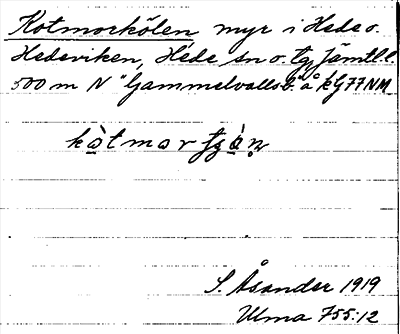 Kotmorkölen myr i Hede o.
Hedeviken, Hede sn o. tg Jämtl. l.
500 m N "Gammelvallsb. å kG77NM
S. Åsander 1919
Ulma 755:12